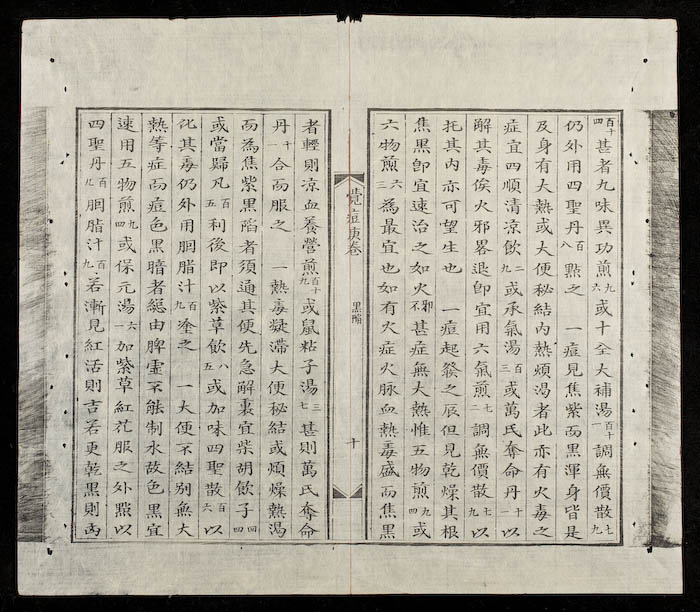 百十四甚者九味異功煎九六或十全大補湯百十一調無價散七九
仍外用四聖丹百八㸃之　一痘見焦紫而黒渾身皆是
及身有大熱或大便秘結內熱煩渴者此亦有火毒之
症宜四順清凉飲二二或承氣湯百三或萬氏奪命丹十一以
解其毒俟火邪畧退卽宜用六氣煎二七調無價散七九以
托其內亦可望生也　一痘起發之辰但見乾燥其根
焦黒卽宜速治之如火邪不甚症無大熱惟五物煎九四或
六物煎六三為最宜也如有火症火脉血熱毒盛而焦黒
覺痘庚卷
黒陷
十
者輕則凉血養營煎百十九或鼠粘子湯三七甚則萬氏奪命
丹十一合而服之　一熱毒凝滯大便秘結或煩燥熱渴
而為焦紫黒陷者須通其便先急解裏宜柴胡飲子四四
或當歸凡百五利後即以紫草飲八五或加味四聖散百六以
化其毒仍外用胭脂汁百九塗之　一大便不結別無大
熱等症而痘色黒暗者緫由脾虛不能制水故色黒宜
速用五物煎九四或保元湯六一加紫草紅花服之外㸃以
四聖丹百九胭脂汁百九若漸見紅活則吉若更乾黒則凶